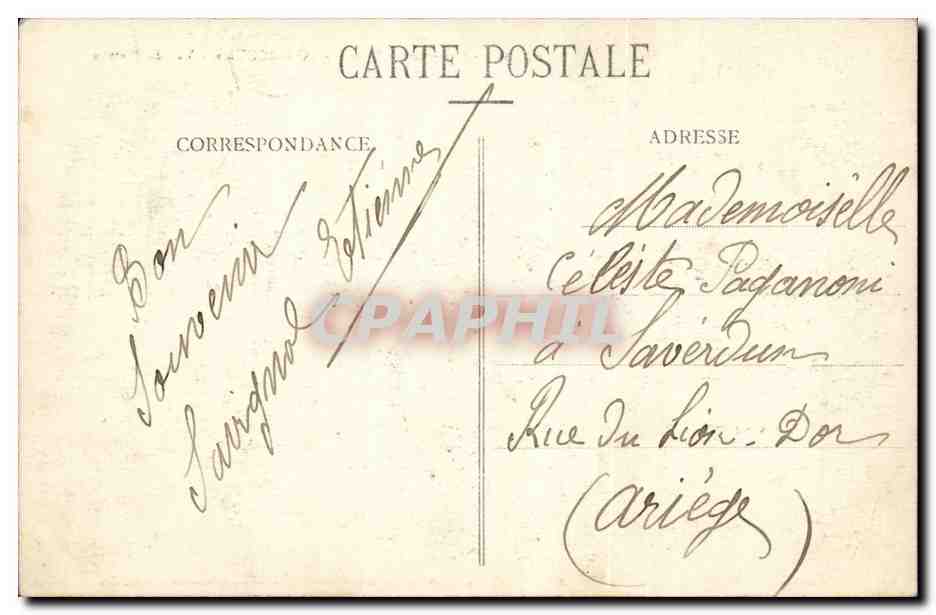 CARTE POSTALE
CORRESPONDANCE
Bon
Souvenir
Etienne
ADRESSE
Mademoiselle
Céleste Paganoni
à Savérdun
Rue du Lion-Dor
(Ariége)
CPAPHIL